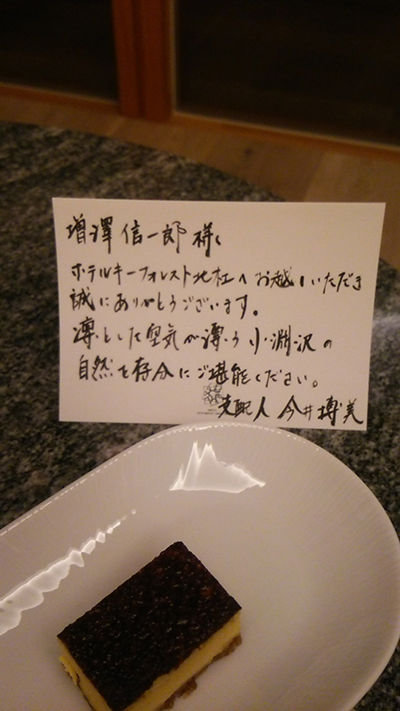 増澤信一郎様
ホテルキーフォレスト北杜へお越しいただき
誠にありがとうございます。
凛とした空気が漂う小淵沢の
自然を存分にご堪能ください。
支配人 今井博美